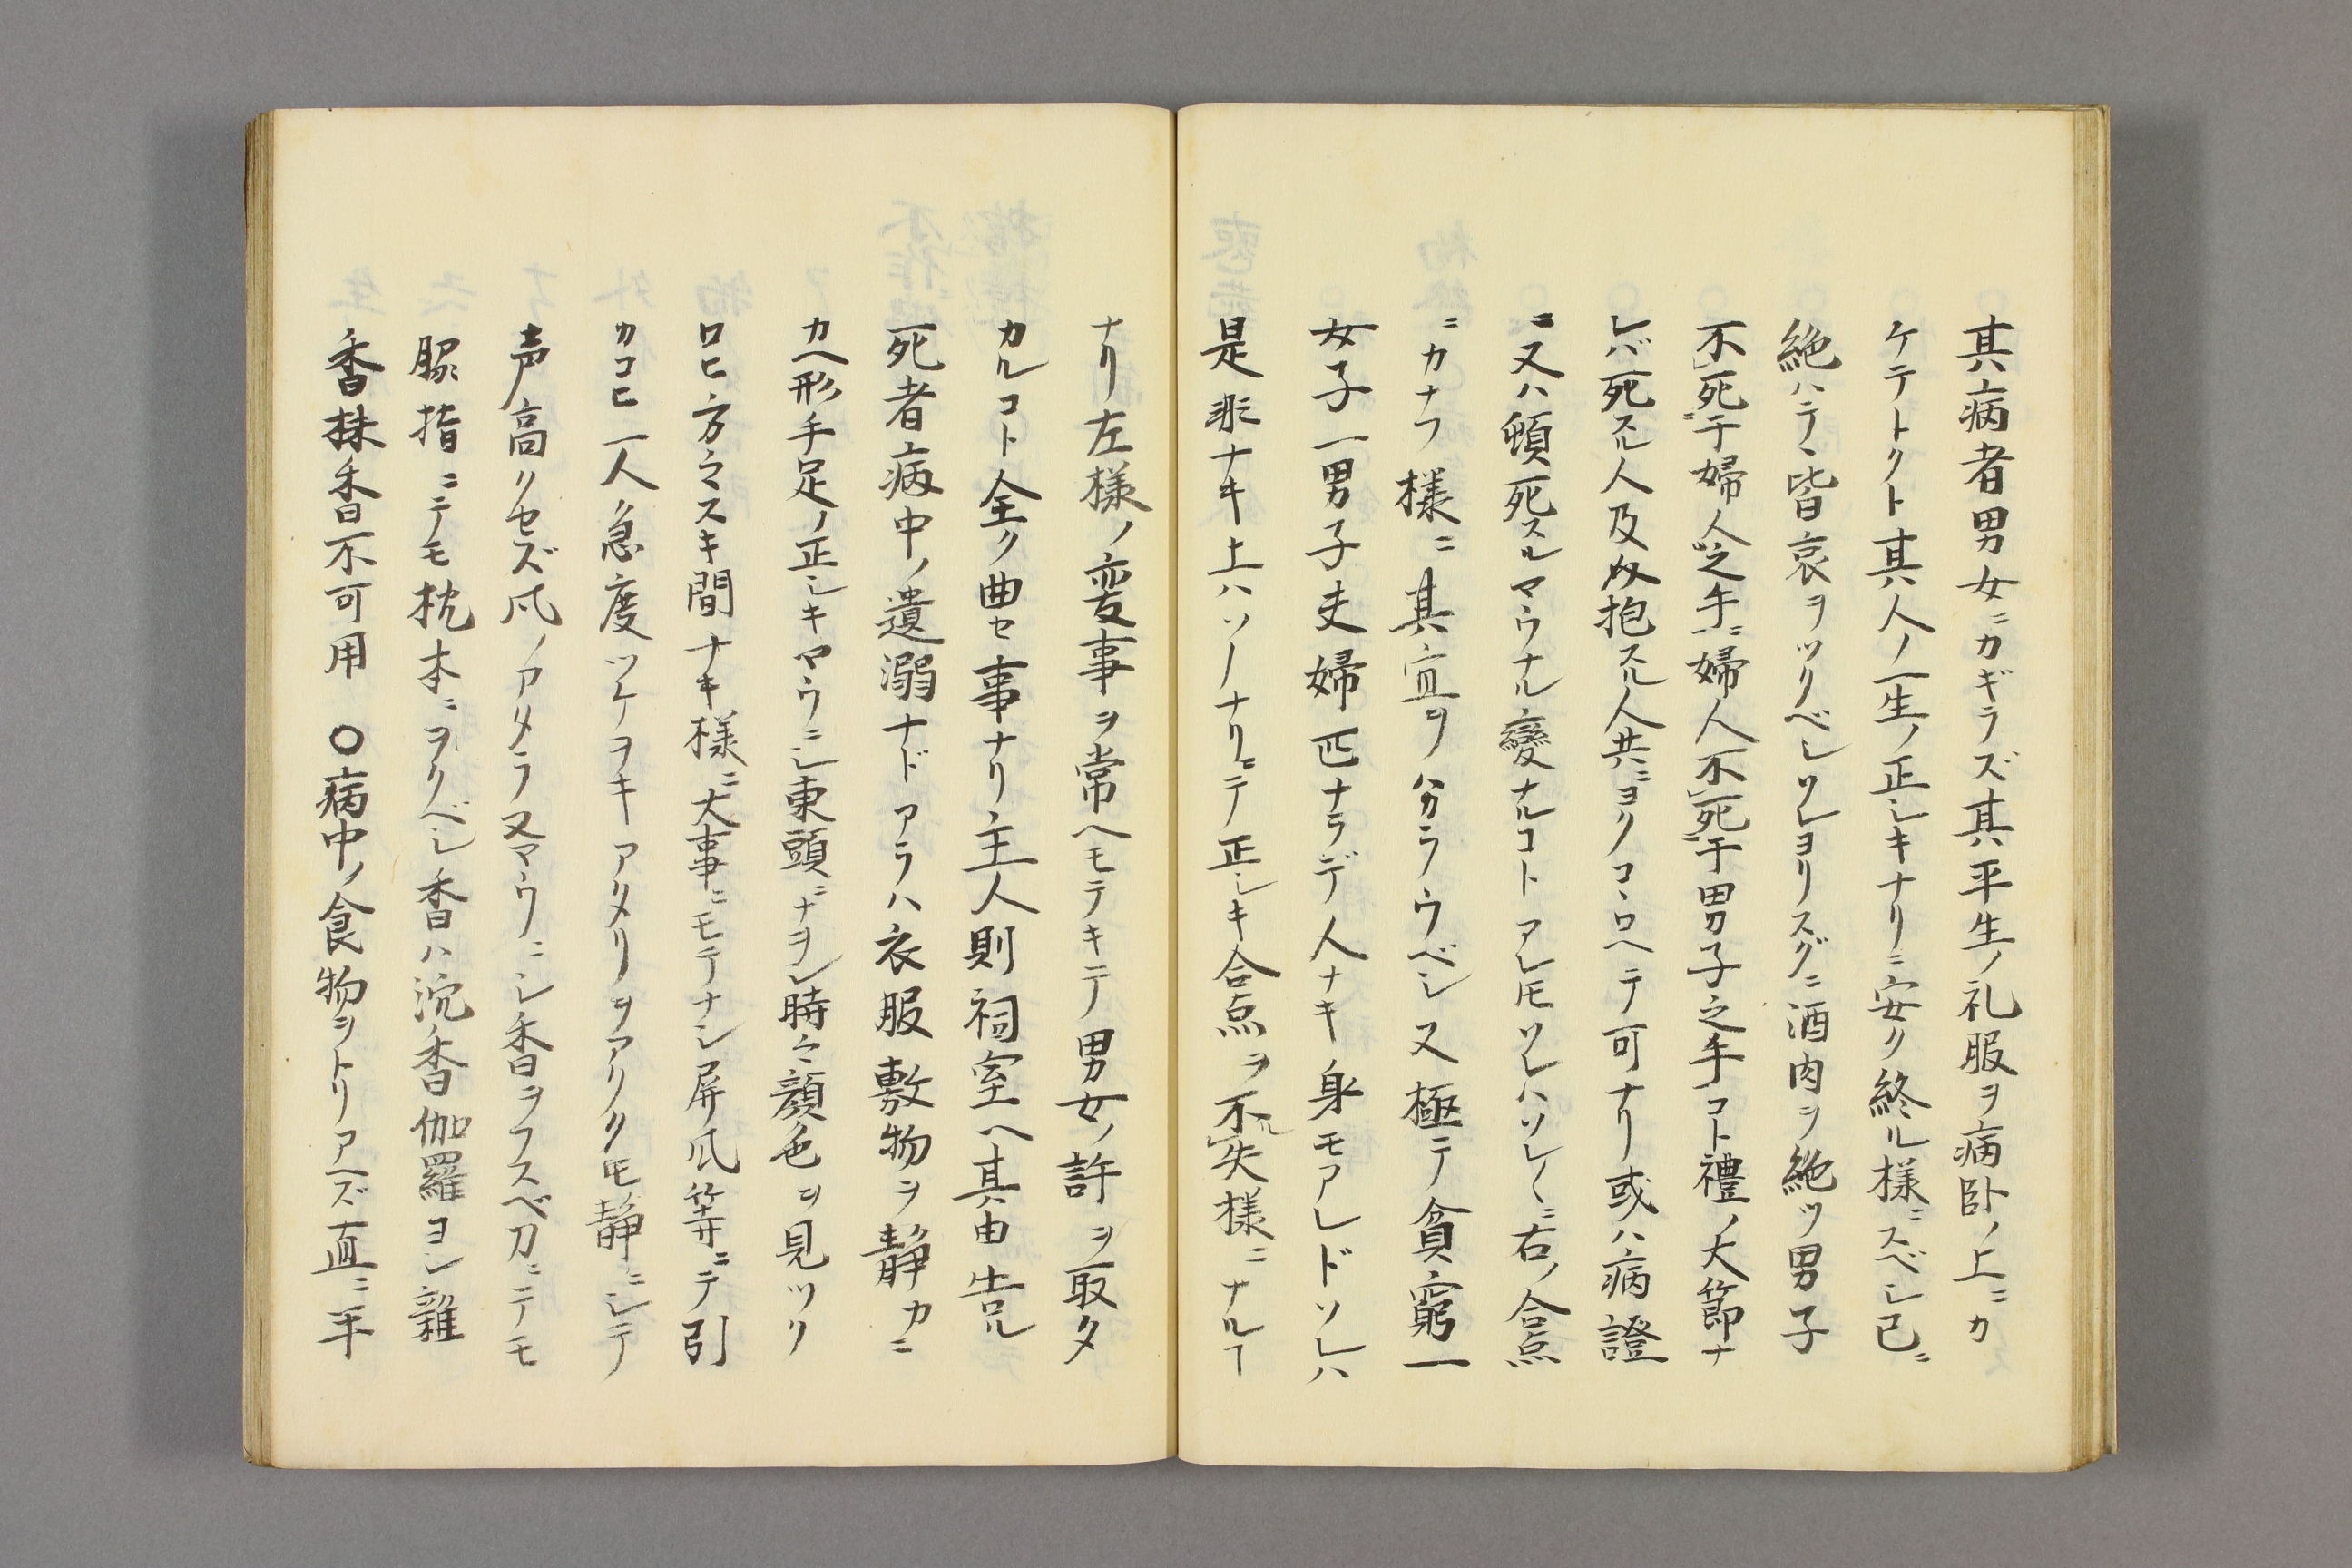 其病者男女ニカギラズ其平生ノ礼服ヲ病卧ノ上ニカ
ケテトクト其人ノ一生ノ正シキナリニ安ク終ル様ニスベシ已ニ
絶ハテヽ皆哀ヲツクベシソレヨリスグニ酒肉ヲ絶ツ男子
不死于婦人之手ニ婦人不死于男子之手コト禮ノ大節ナ
レバ死スル人及ヒ抱スル人共ニヨクコヽロヘテ可ナリ或ハ病證
ニ又ハ頓死スルマウナル變ナルコトアレ𪜈ソレハソレ〱ニ右ノ合点
ニカナフ様ニ其宜ヲ分ラウベシ又極テ貧窮一
女子一男子夫婦匹ナラデ人ナキ身モアレドソレハ
是非ナキ上ハソノナリニテ正シキ合点ヲ不失様ニナルヿ
ナリ左様ノ変事ヲ常ヘモテキテ男女ノ許ヲ取タ
カルコト全ク曲セ事ナリ、主人則祠室ヘ其由告ル
死者病中ノ遺溺ナドアラハ衣服敷物ヲ静カニ
カヘ形手足ノ正シキマウニシ東頭ニナヲシ時々顔色ヲ見ツク
ロヒ方々スキ間ナキ様ニ大事ニモテナシ屏凮等ニテ引
カコヒ一人急度ツケヲキアタリヲアリク𪜈静ニシテ
声高クセズ凮ノアタラヌマウニシ香ヲフスベ刀ニテモ
脇指ニテモ枕本ニヲクベシ香ハ沉香伽羅ヨシ雜
香抹香不可用　〇病中ノ食物ヲトリアヘズ直ニ平